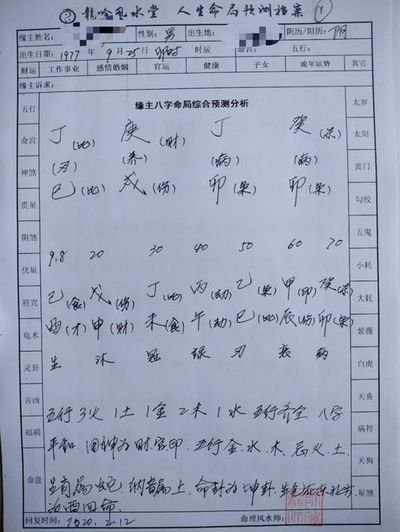 龍吟風水堂 人生命局预测档案 ①
缘主姓名: 性别: 男 出生地: 阴历/阳历: 阴
出生日期: 1977 年 9月25日 卯时 命宫: 五行:
财运 工作事业 感情婚姻 官运 健康 子女 流年运势 其它
缘主诉求:
缘主八字命局综合预测分析
丁(比) 庚(财) 丁 癸(杀)
(刃) (养) (病) (病)
巳(比) 戌(伤) 卯(枭) 卯(枭)
9.8 20 30 40 50 60 70
己(食) 戊(伤) 丁(比) 丙(劫) 乙(枭) 甲(印) 癸(杀)
酉(才) 申(财) 未(食) 午(劫) 巳(比) 辰(伤) 卯(枭)
生 沐 冠 禄 刃 衰 病
五行3火1土1金2木1水 五行齐全 八字
平和 用神为财官印 五行金水木 忌火土
生肖属蛇 纳音属土 命卦为坤卦
西四命
五行
命宫
神煞
贵星
阴煞
伏星
符咒
龟术
灵卦
吉凶
福祸
命盘
太岁
太阳
丧门
勾绞
五鬼
小耗
大耗
紫薇
白虎
天喜
病符
天狗
星煞
回复时间: 2020.2.12 命理风水师: